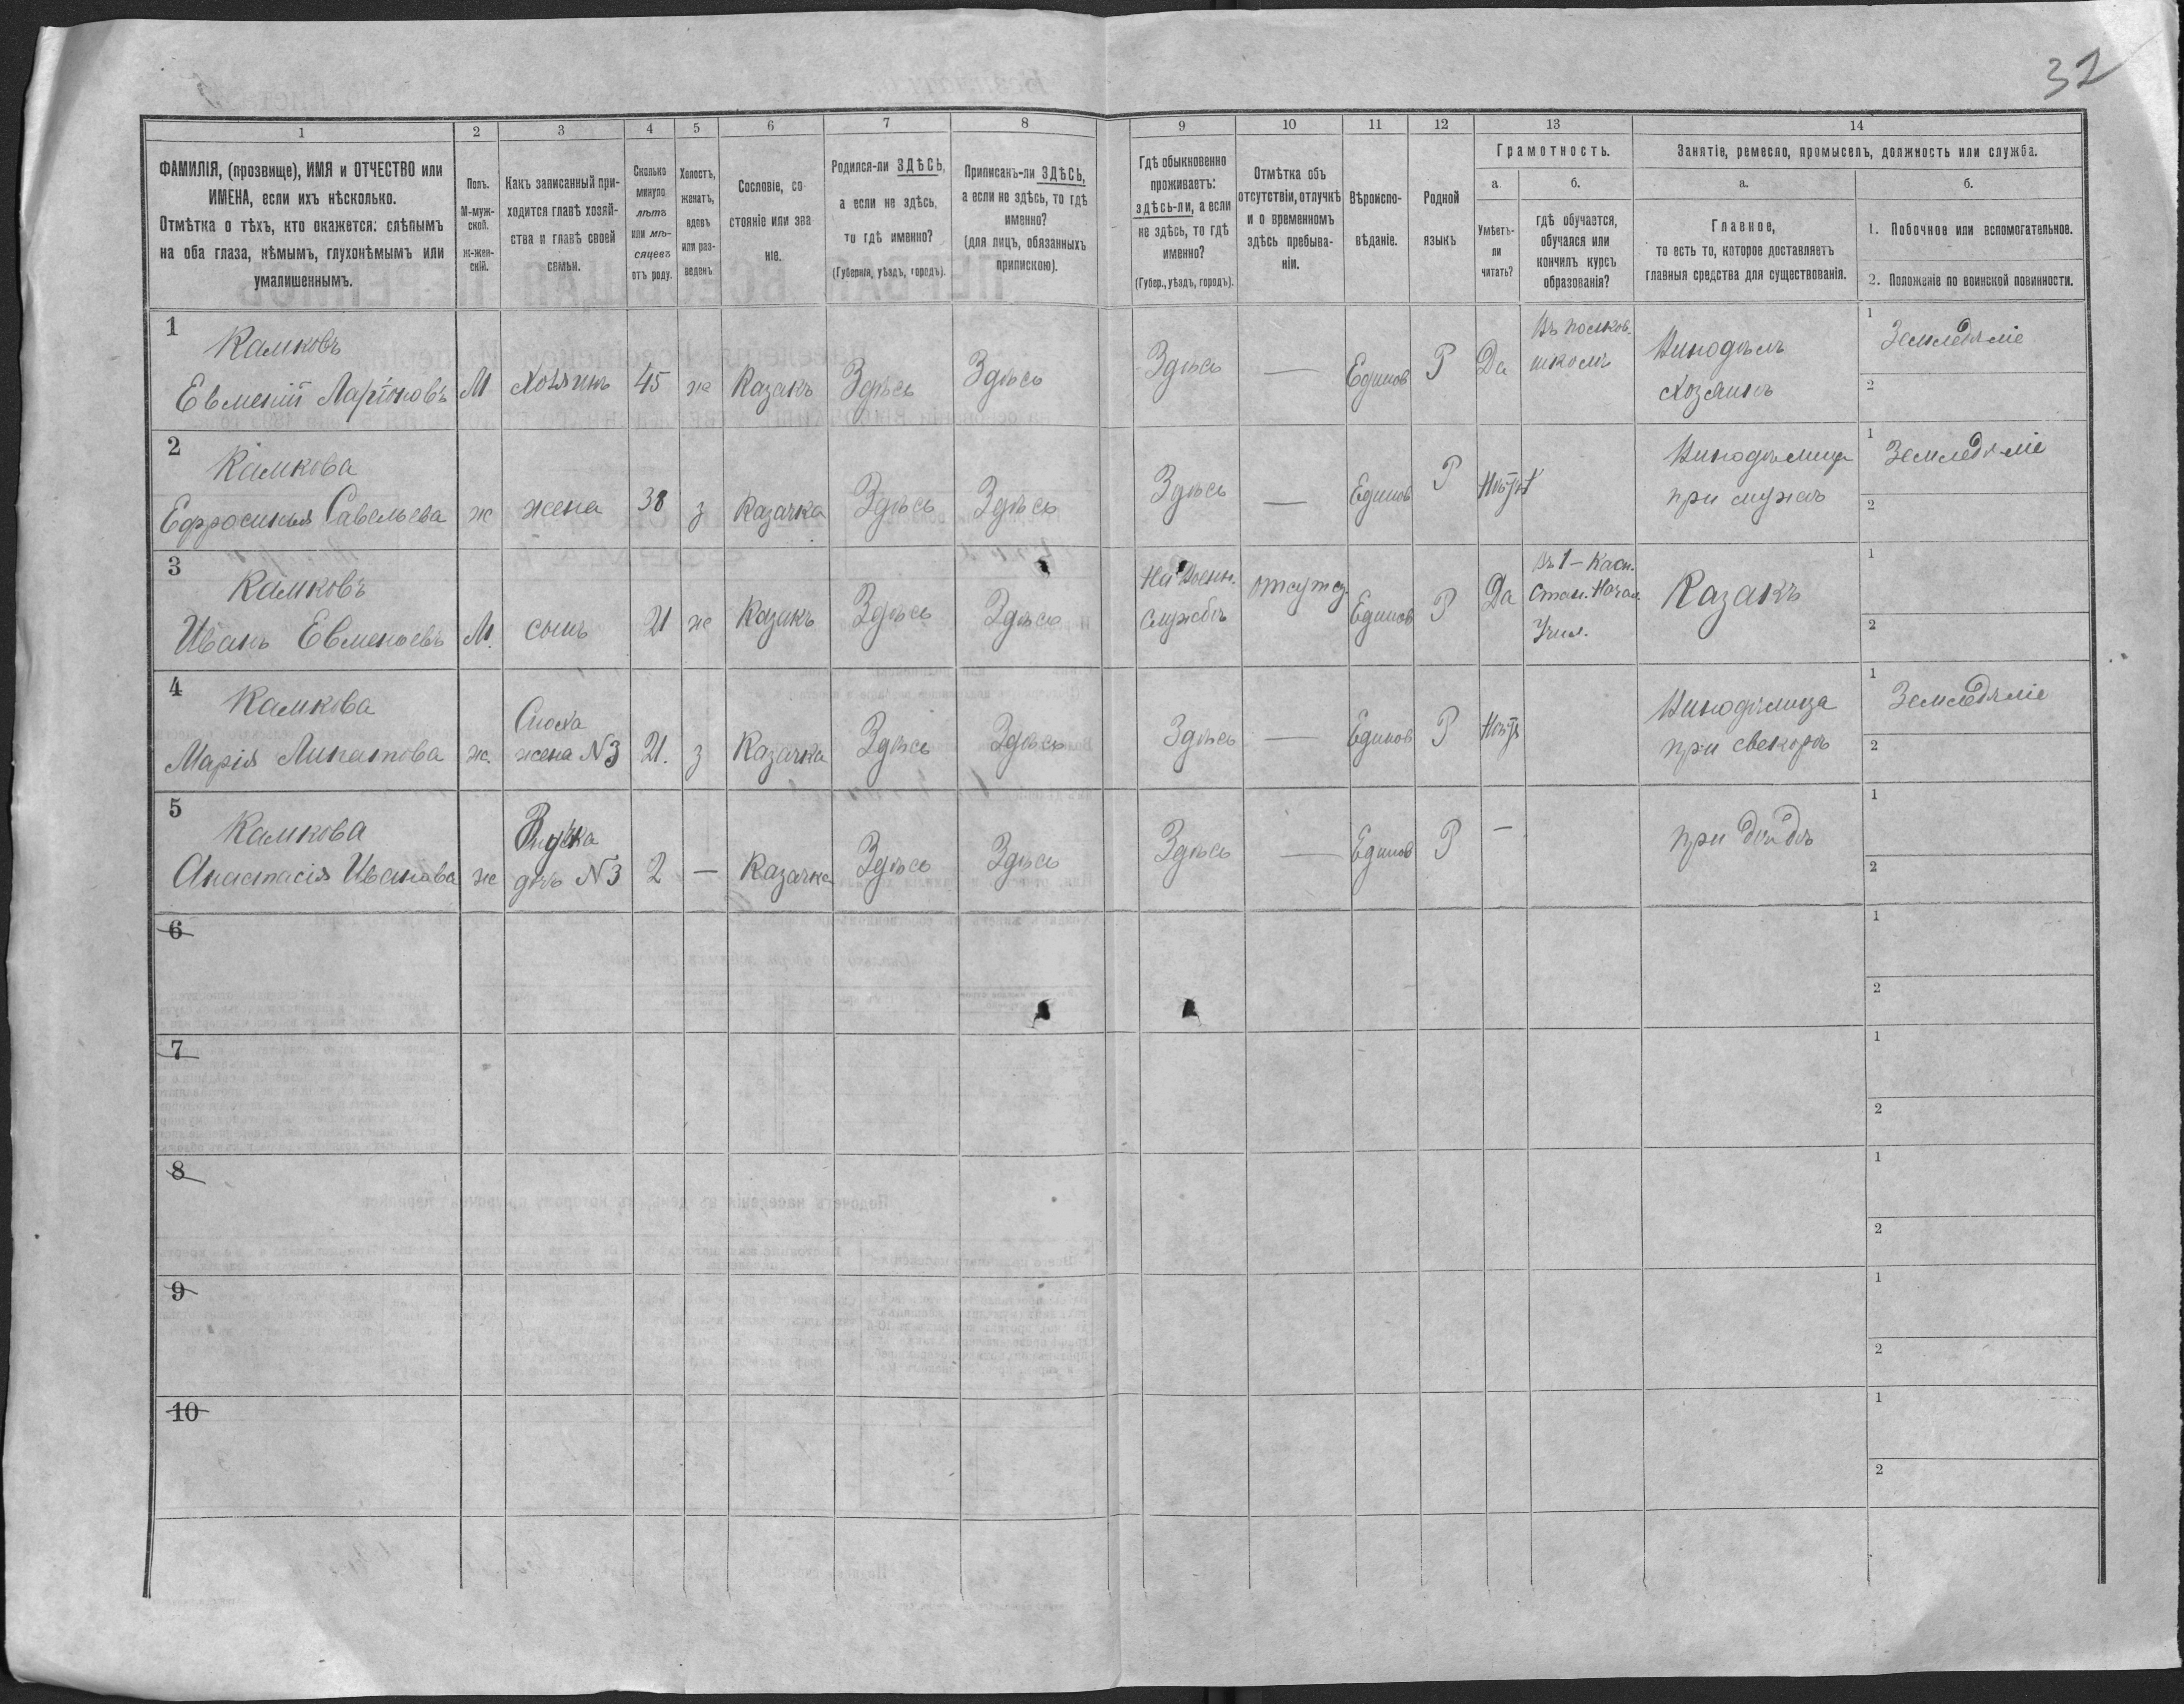 32
1 2 3 4 5 6 7 8 9 10 11 12 13 14
ФАМИЛІЯ, (прозвище), ИМЯ и ОТЧЕСТВО или
ИМЕНА, если ихъ нѣсколько.
Отмѣтка о тѣхъ, кто окажется: слѣпымъ
на оба глаза, нѣмымъ, глухонѣмымъ или
умалишеннымъ.
Полъ.
М-муж-
ской.
ж-жен-
скій.
Какъ записанный при-
ходится главѣ хозяй-
ства и главѣ своей
семьи.
Сколько
минуло
лѣтъ
или мѣ-
сяцевъ
отъ роду.
Холостъ,
женатъ,
вдовъ
или раз-
веденъ
Сословіе, со-
стояніе или зва
ніе.
Родился-ли ЗДѢСЬ,
а если не здѣсь,
то гдѣ именно?
(Губернія, уѣздъ, городъ).
Приписанъ-ли ЗДѢСЬ,
а если не здѣсь, то гдѣ
именно?
(для лицъ, обязанныхъ
припискою).
Гдѣ обыкновенно
проживаетъ:
здѣсь-ли, а если
не здѣсь, то гдѣ
именно?
(Губер., уѣздъ, городъ).
Отмѣтка объ
отсутствіи, отлучкѣ
и о временномъ
здѣсь пребыва-
ніи.
Вѣроиспо-
вѣданіе.
Родной
языкъ
Грамотность.
а
Умѣетъ-
ли
читать?
б.
гдѣ обучается,
обучался или
кончилъ курсъ
образованія?
Занятіе, ремесло, промыселъ, должность или служба.
а.
Главное,
то есть то, которое доставляетъ
главныя средства для существованія.
б.
1. Побочное или вспомогательное.
2. Положеніе по воинской повинности.
1
Камковъ
Евменій Ларіоновъ
М
Хозяинъ
45
ж
Казакъ
Здѣсь
Здѣсь
Здѣсь
—
Единов
Р
Да
Въ полков.
школѣ
Винодѣлъ
хозяинъ
1
Земледѣліе
2
2
Камкова
Ефросинья Савельева
ж
жена
38
з
Казачка
Здѣсь
Здѣсь
Здѣсь
—
Единов
Р
Нѣтъ
Винодѣлица
при мужѣ
1
Земледѣліе
2
3
Камковъ
Иванъ Евменьевъ
М.
сынъ
21
ж
Казакъ
Здѣсь
Здѣсь
На Воен.
службѣ
отсутст.
Единов
Р
Да
Въ 1-
Стан. Начал.
Учил.
Казакъ
1
2
4
Камкова
Марія Липатова
ж.
Сноха
жена N3
21.
з
Казачка
Здѣсь
Здѣсь
Здѣсь
—
Единов
Р
Нѣтъ
Винодѣлица
при свекорѣ
1
Земледѣліе
2
5
Камкова
Анастасія Иванова
ж
Внучка
дочь N3
2
—
Казачка
Здѣсь
Здѣсь
Здѣсь
—
Единов
Р
—
при дѣдѣ
1
2
6
1
2
7
1
2
8
1
2
9
1
2
10
1
2